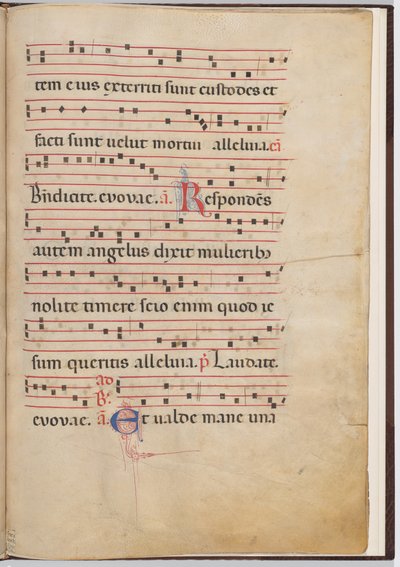 tem eius exterriti sunt custodes et
facti sunt uelut mortui alleluia.
Bñdicite. euouae. ã. Respondẽs
autem angelus dixit mulierib
nolite timere scio enim quod ie
sum queritis alleluia. p̃ Laudate.
ad
euouae. ã. Et ualde mane una